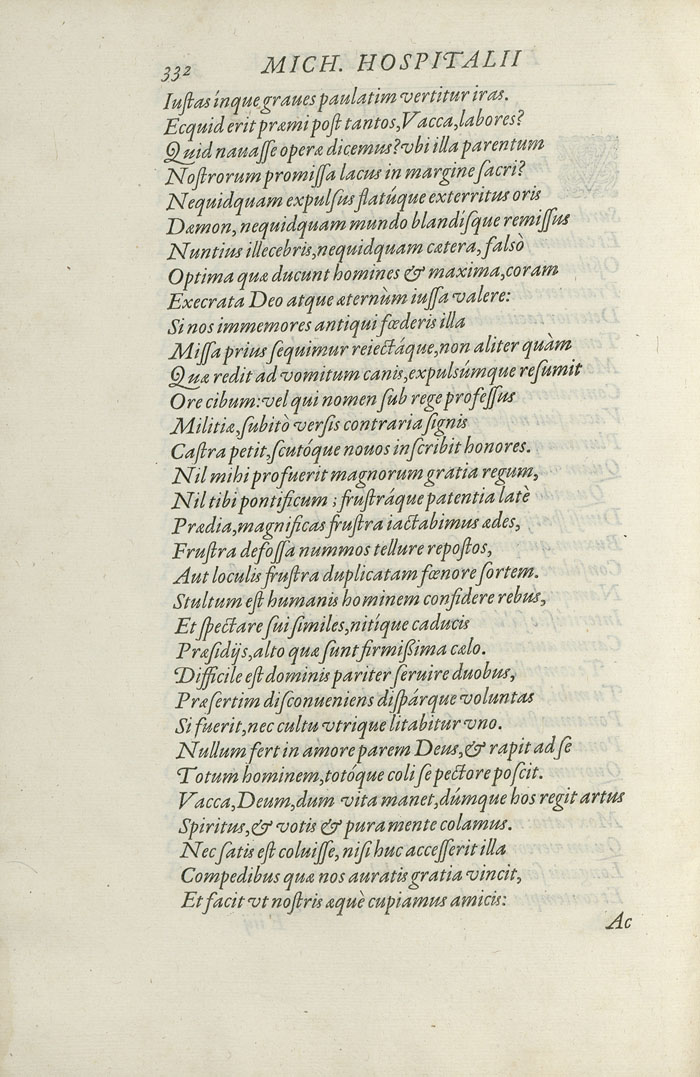 332 MICH. HOSPITALII
Iuſtas ínque graues paulatim vertitur iras.
Ecquid erit præmi poſt tantos, Vacca, labores?
Quid nauaſſe operæ dicemus? vbi illa parentum
Noſtrorum promiſſa lacus in margine ſacri?
Nequidquam expulſus flatúque exterritus oris
Dæmon, nequidquam mundo blandiſque remiſſus
Nuntius illecebris, nequidquam cætera, falsò
Optima quæ ducunt homines & maxima, coram
Execrata Deo atque æternùm iuſſa valere:
Si nos immemores antiqui fœderis illa
Miſſa prius ſequimur reiectáque, non aliter quàm
Quæ redit ad vomitum canis, expulsúmque reſumit
Ore cibum: vel qui nomen ſub rege profeſſus
Militiæ, ſubitò verſis contraria ſignis
Caſtra petit, ſcutóque nouos inſcribit honores.
Nil mihi profuerit magnorum gratia regum,
Nil tibi pontificum; fruſtráque patentia latè
Prædia, magnificas fruſtra iactabimus ædes,
Fruſtra defoſſa nummos tellure repoſtos,
Aut loculis fruſtra duplicatam fœnore ſortem.
Stultum eſt humanis hominem confidere rebus,
Et ſpectare ſui ſimiles, nitíque caducis
Præſidijs, alto quæ ſunt firmißima cælo.
Difficile eſt dominis pariter ſeruire duobus,
Præſertim diſconueniens diſpárque voluntas
Si fuerit, nec cultu vtrique litabitur vno.
Nullum fert in amore parem Deus, & rapit ad ſe
Totum hominem, totóque coli ſe pectore poſcit.
Vacca, Deum, dum vita manet, dúmque hos regit artus
Spiritus, & votis & pura mente colamus.
Nec ſatis eſt coluiſſe, niſi huc acceſſerit illa
Compedibus quæ nos auratis gratia vincit,
Et facit vt noſtris æquè cupiamus amicis:
Ac